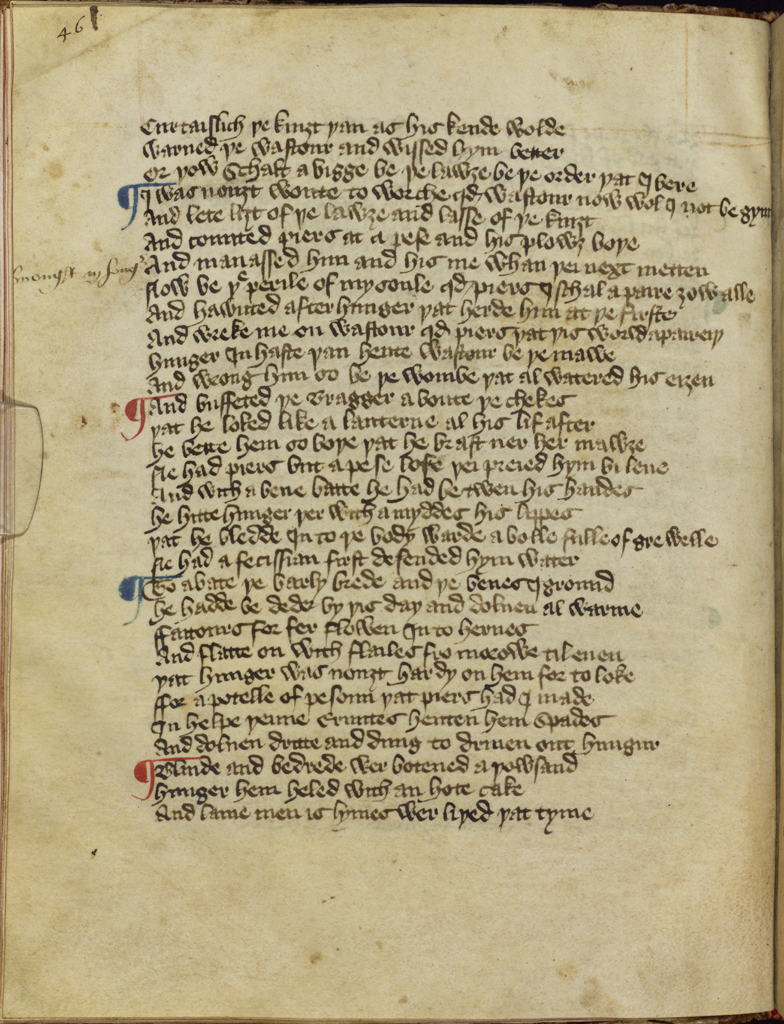 46
Curtaislich þe kinȝt þan as his kende wolde
warned þe wastour and wissed hym better
Or þow Schalt abigge be þe lawȝe be þe order þat I bere
¶ I was nouȝt wonte to worche qd wastour now wol I not begynne
And lete liȝt of þe lawȝe and lasse of þe kinȝt
And counted piers at a pese and his plowȝ boþe
And manassed him and his me whan þei next metten
Now be þe perile of my soule qd piers I schal apaire ȝow alle
And hawuted after hunger þat herde him at þe firste
And wreke me on wastour qd piers þat þis world apaireþ
hunger In haste þan hente wastour be þe mawe
And wrong him so be þe wombe þat al watered his eiȝen
¶ And buffeted þe Bragger aboute þe chekes
þat he loked like a lanterne al his lif after
he bette hem so boþe þat he brast ner her mawȝe
Ne had piers but a pese lofe þei preied hym bi leue
And with a bene batte he had be twen his handes
he hitte hunger þer with amyddes his lippes
þat he bledde In to þe body warde a bolle fulle of grewelle
Ne had a fecissian first defended hym water
¶ To abate þe barly brede and þe benes I ground
he hadde be deder by þis day and doluen al warme
ffaitours for fer flowen In to hernes
And flatte on with flailes fro morowe til euen
þat hunger was nouȝt hardy on hem for to loke
ffor a potelle of pesoun þat piers had I made
In helpe þenne Ermites henten hem Spades
And doluen dritte and dung to driuen out hungur
¶ Blinde and bedrede wer botened a þowsand
hunger hem heled with an hote cake
And lame men is lymes wer liþed þat tyme